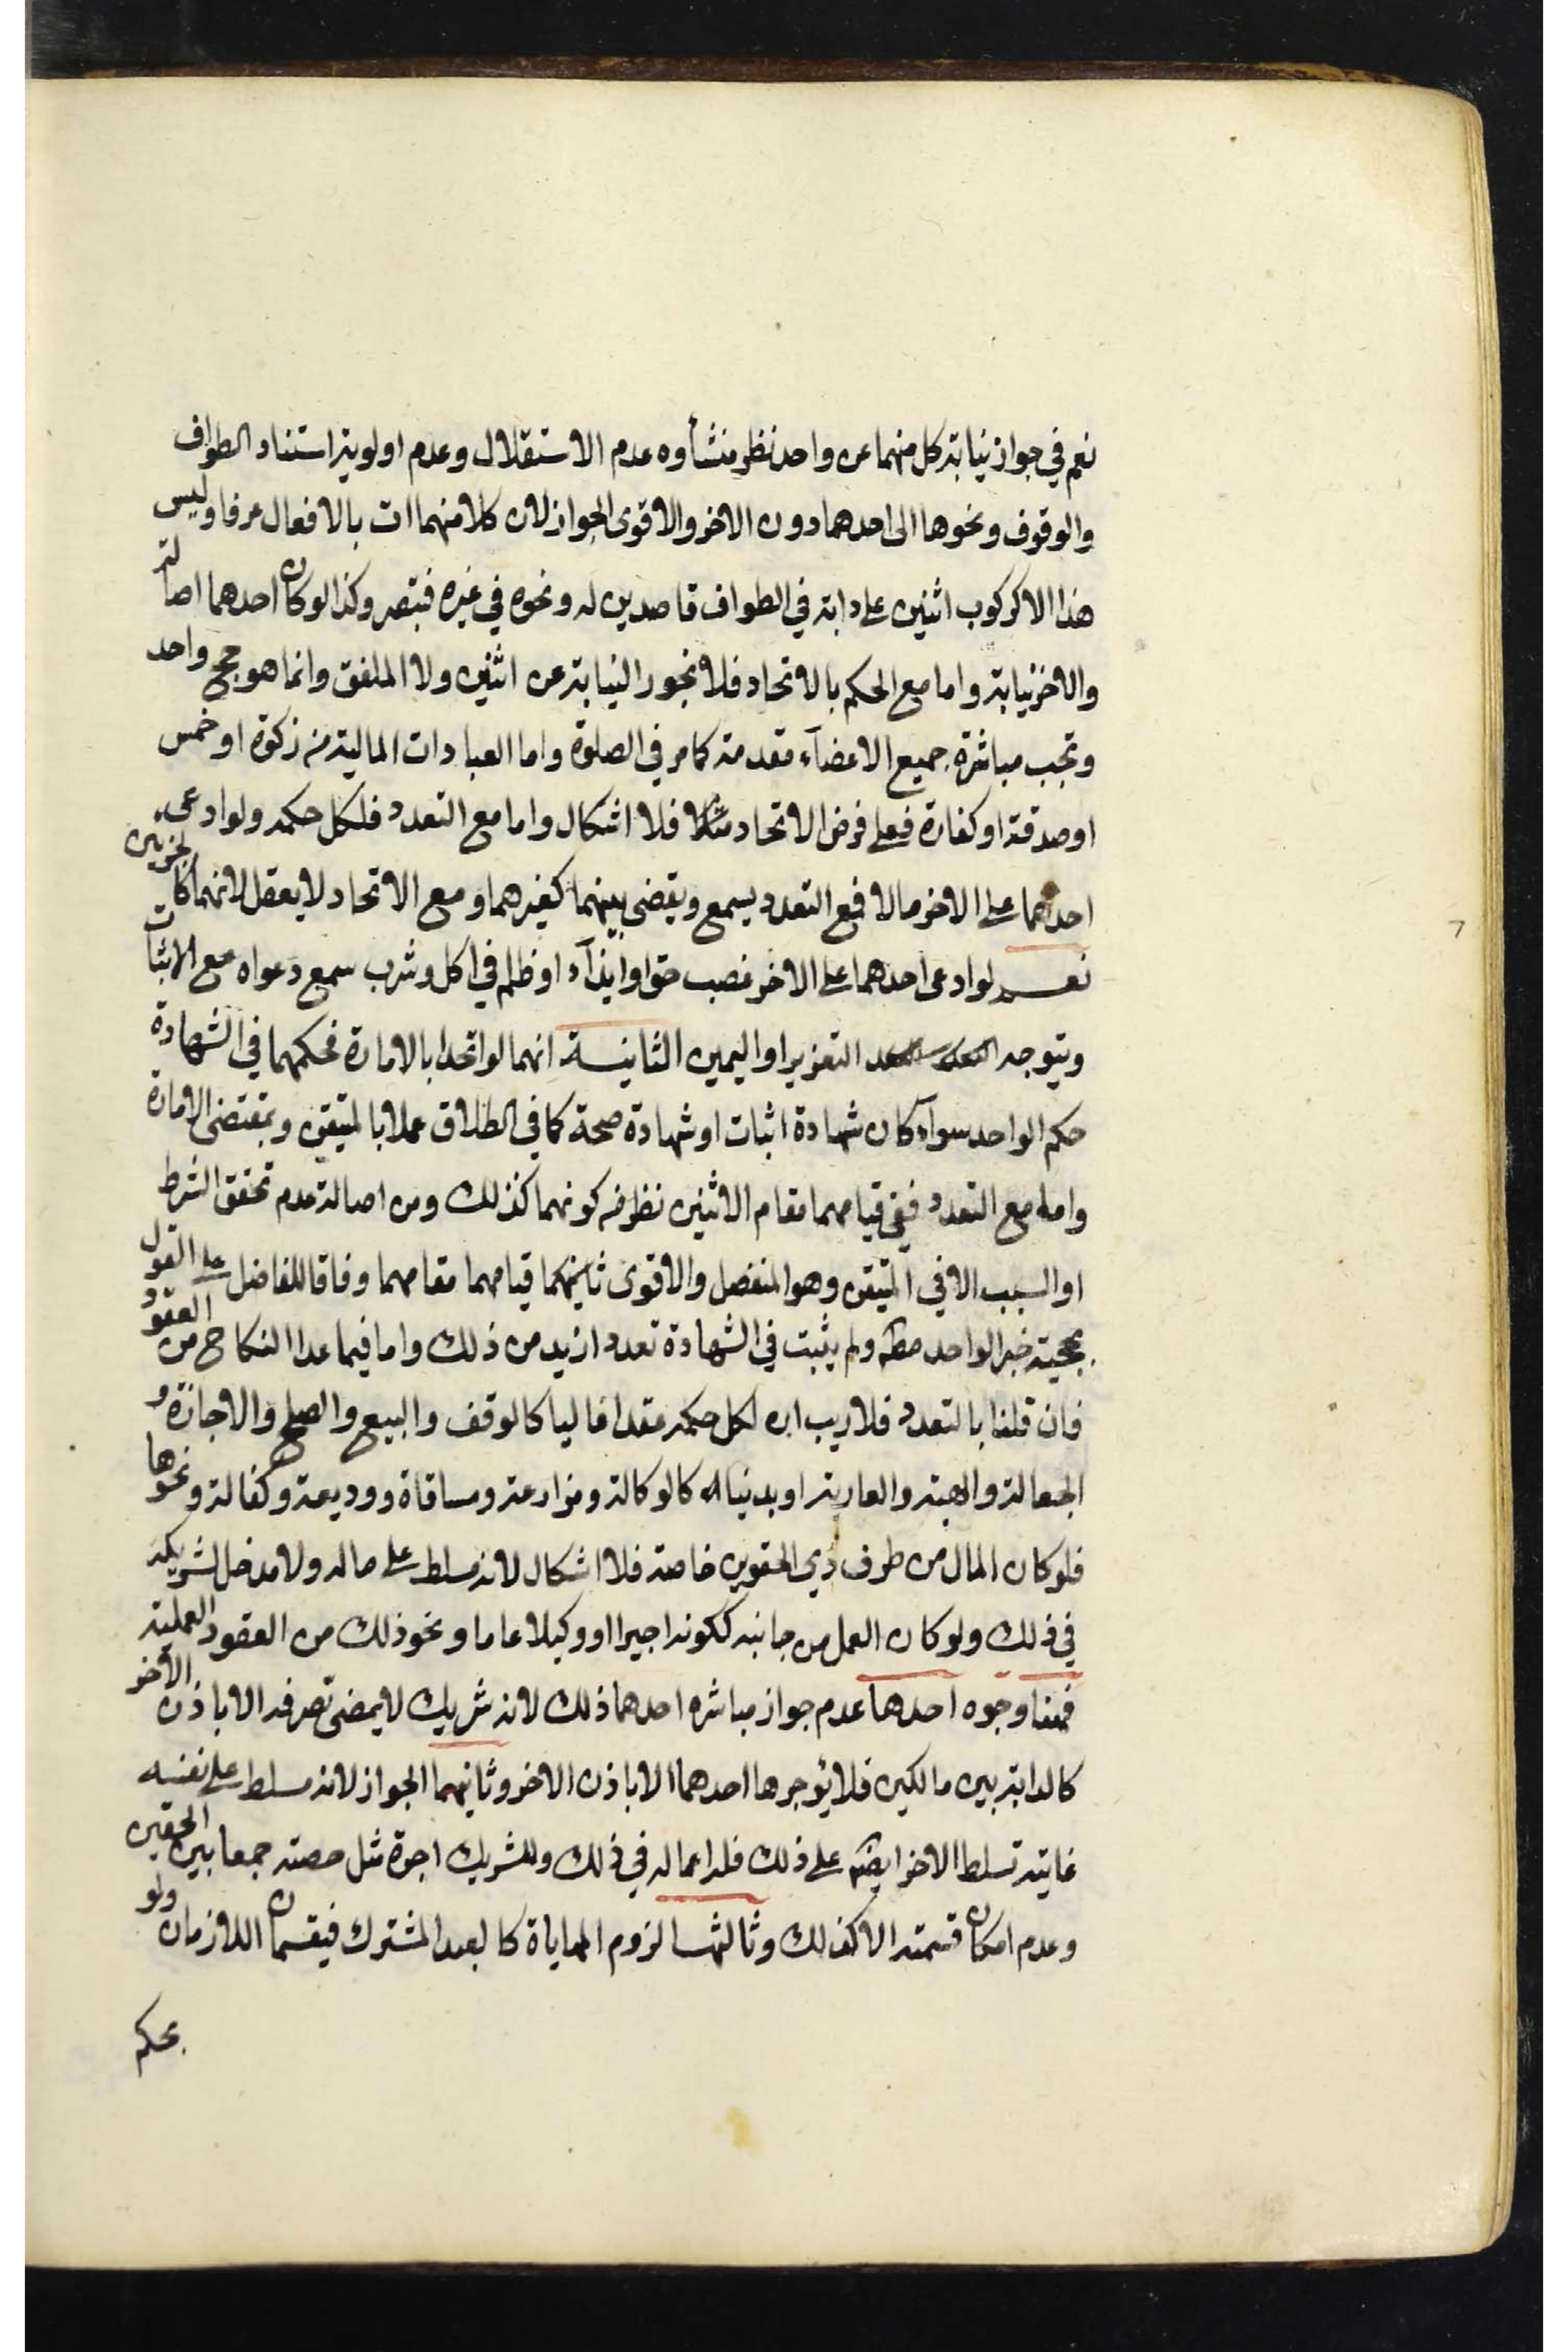 نعم في جواز نيابة كل منهما عن واحد نظر منشأوه عدم الاستقلال وعدم اولوية استناد الطواف
والوقوف ونحوها الى احدهما دون الاخر والاقوى الجواز لان كلا منهما ات بالافعال عرفا وليس
هذا الا كركوب اثنين على دابة في الطواف قاصدين له ونحوه في غيره فتبصر وكذا لو كان احدهما اصالة
والاخر نيابة واما مع الحكم بالاتحاد فلا تجوز النيابة عن اثنين ولا الملفق وانما هو حج واحد
وتجب مباشرة جميع الاعضآء مقدمة كما مر في الصلوة واما العبادات المالية من زكوة او خمس
او صدقة او كفارة فعلى فرض الاتحاد مثلا فلا اشكال واما مع التعدد فلكل حكمه ولو ادعى
احدهما على الاخر مالا فمع التعدد يسمع ويقضى بينهما كغيرهما ومع الاتحاد لا يعقل لانهما كالجزئين
نعم لو ادعى احدهما على الاخر غصب حق او ايذآء او ظلم في اكل وشرب سمع دعواه مع الاثبات
ويتوجه التعزير او اليمين الثانية انهما لو اتحدا بالامارة فحكمهما في الشهادة
حكم الواحد سوآء كان شهادة اثبات او شهادة صحة كما في الطلاق عملا بالمتيقن وبمقتضى الامارة
واما مع التعدد ففي قيامهما مقام الاثنين نظر من كونهما كذلك ومن اصالة عدم تحقق الشرط
او السبب الا في المتيقن وهو المنفصل والاقوى ثانيهما قيامهما مقامهما وفاقا للفاضل على القول
بحجية خبر الواحد مطم ولم يثبت في الشهادة تعدد ازيد من ذلك واما فيما عدا النكاح من العقود
فان قلنا بالتعدد فلا ريب ان لكل حكمه عقدا ماليا كالوقف والبيع والصلح والاجازة و
الجعالة والهبة والعارية او بدنيا كالوكالة ومزارعة ومساقاة ووديعة وكفالة ونحوها
فلو كان المال من طرف ذي الحقوين خاصة فلا اشكال لانه مسلط على ماله ولا مدخل لشريكه
في ذلك ولو كان العمل من جانبه ككونه اجيرا او وكيلا عاما ونحو ذلك من العقود العملية
فهنا وجوه احدها عدم جواز مباشره احدهما ذلك لانه شريك لا يمضى تصرفه الا باذن الاخر
كالدابة بين مالكين فلا يؤجرها احدهما الا باذن الاخر وثانيهما الجواز لانه مسلط على نفسه
غايته تسلط الاخر ايضا على ذلك فله اعماله في ذلك وللشريك اجرة مثل حصته جمعا بين الحقين
وعدم امكان قسمته الا كذلك وثالثها لزوم المهاياة كالعبد المشترك فيقسمان اللازمان ولو
بحكم